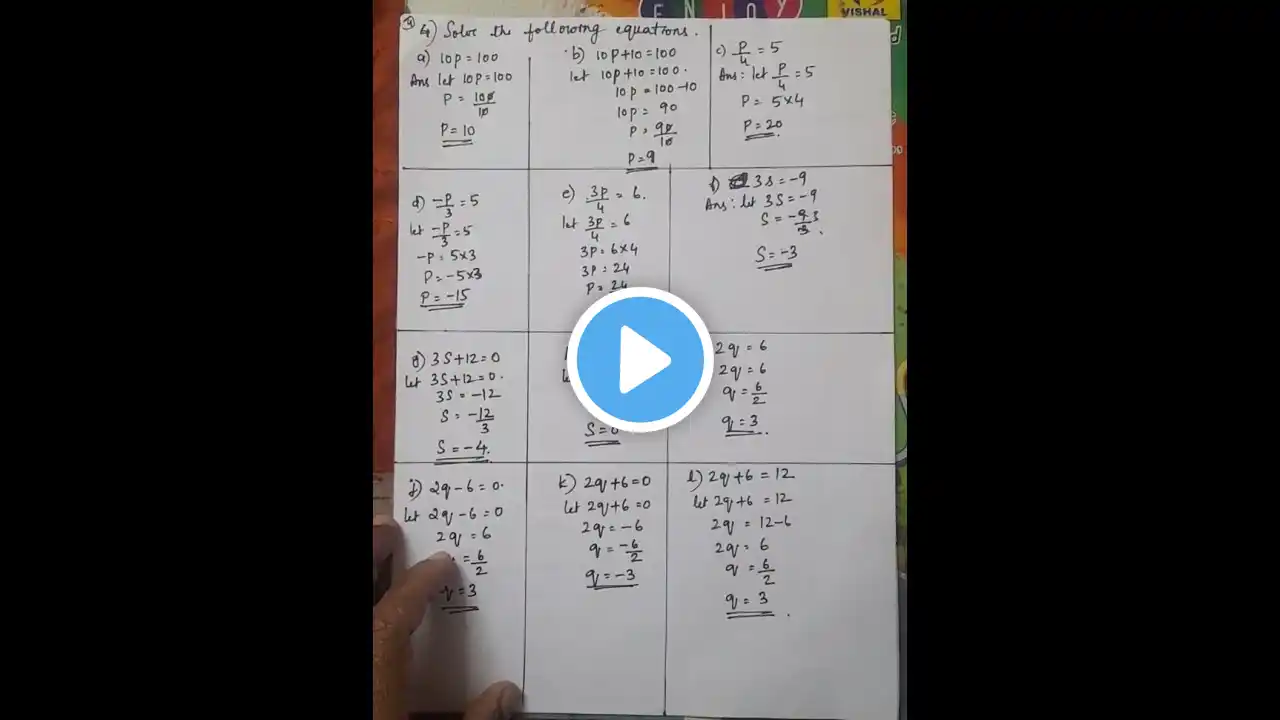 ENJOY
VISHAL
4) Solve the following equations.
a) 10p = 100
Ans let 10p = 100
P = 100/10
P = 10
b) 10P + 10 = 100
let 10p + 10 = 100.
10p = 100 - 10
10p = 90
P = 90/10
P = 9
c) P/4 = 5
Ans: let P/4 = 5
P = 5 × 4
P = 20
d) -P/3 = 5
let -P/3 = 5
-P = 5×3
P = -5×3
P = -15
e) 3p/4 = 6.
let 3p/4 = 6
3p = 6×4
3p = 24
P = 24
f) 3s = -9
Ans: let 3s = -9
S = -9/3
S = -3
g) 3S + 12 = 0
let 3S + 12 = 0.
3S = -12
S = -12/3
S = -4.
let
S = 0
2q = 6
2q = 6
q = 6/2
q = 3
j) 2q - 6 = 0.
let 2q - 6 = 0
2q = 6
= 6/2
q = 3
k) 2q + 6 = 0
let 2q + 6 = 0
2q = -6
q = -6/2
q = -3
l) 2q + 6 = 12
let 2q + 6 = 12
2q = 12 - 6
2q = 6
q = 6/2
q = 3